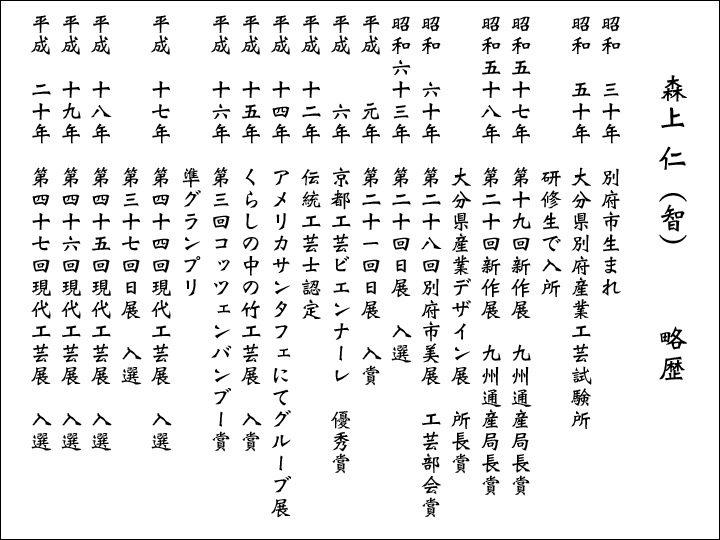 森上 仁（智） 略歴
昭和 三十年 別府市生まれ
昭和 五十年 大分県別府産業工芸試験所
研修生で入所
昭和五十七年 第十九回新作展 九州通産局長賞
昭和五十八年 第二十回新作展 九州通産局長賞
大分県産業デザイン展 所長賞
昭和 六十年 第二十八回別府市美展 工芸部会賞
昭和六十三年 第二十回日展 入選
平成 元年 第二十一回日展 入賞
平成 六年 京都工芸ビエンナーレ 優秀賞
平成 十二年 伝統工芸士認定
平成 十四年 アメリカサンタフェにてグループ展
平成 十五年 くらしの中の竹工芸展 入賞
平成 十六年 第三回コッツェンバンブー賞
準グランプリ
平成 十七年 第四十四回現代工芸展 入選
第三十七回日展 入選
平成 十八年 第四十五回現代工芸展 入選
平成 十九年 第四十六回現代工芸展 入選
平成 二十年 第四十七回現代工芸展 入選